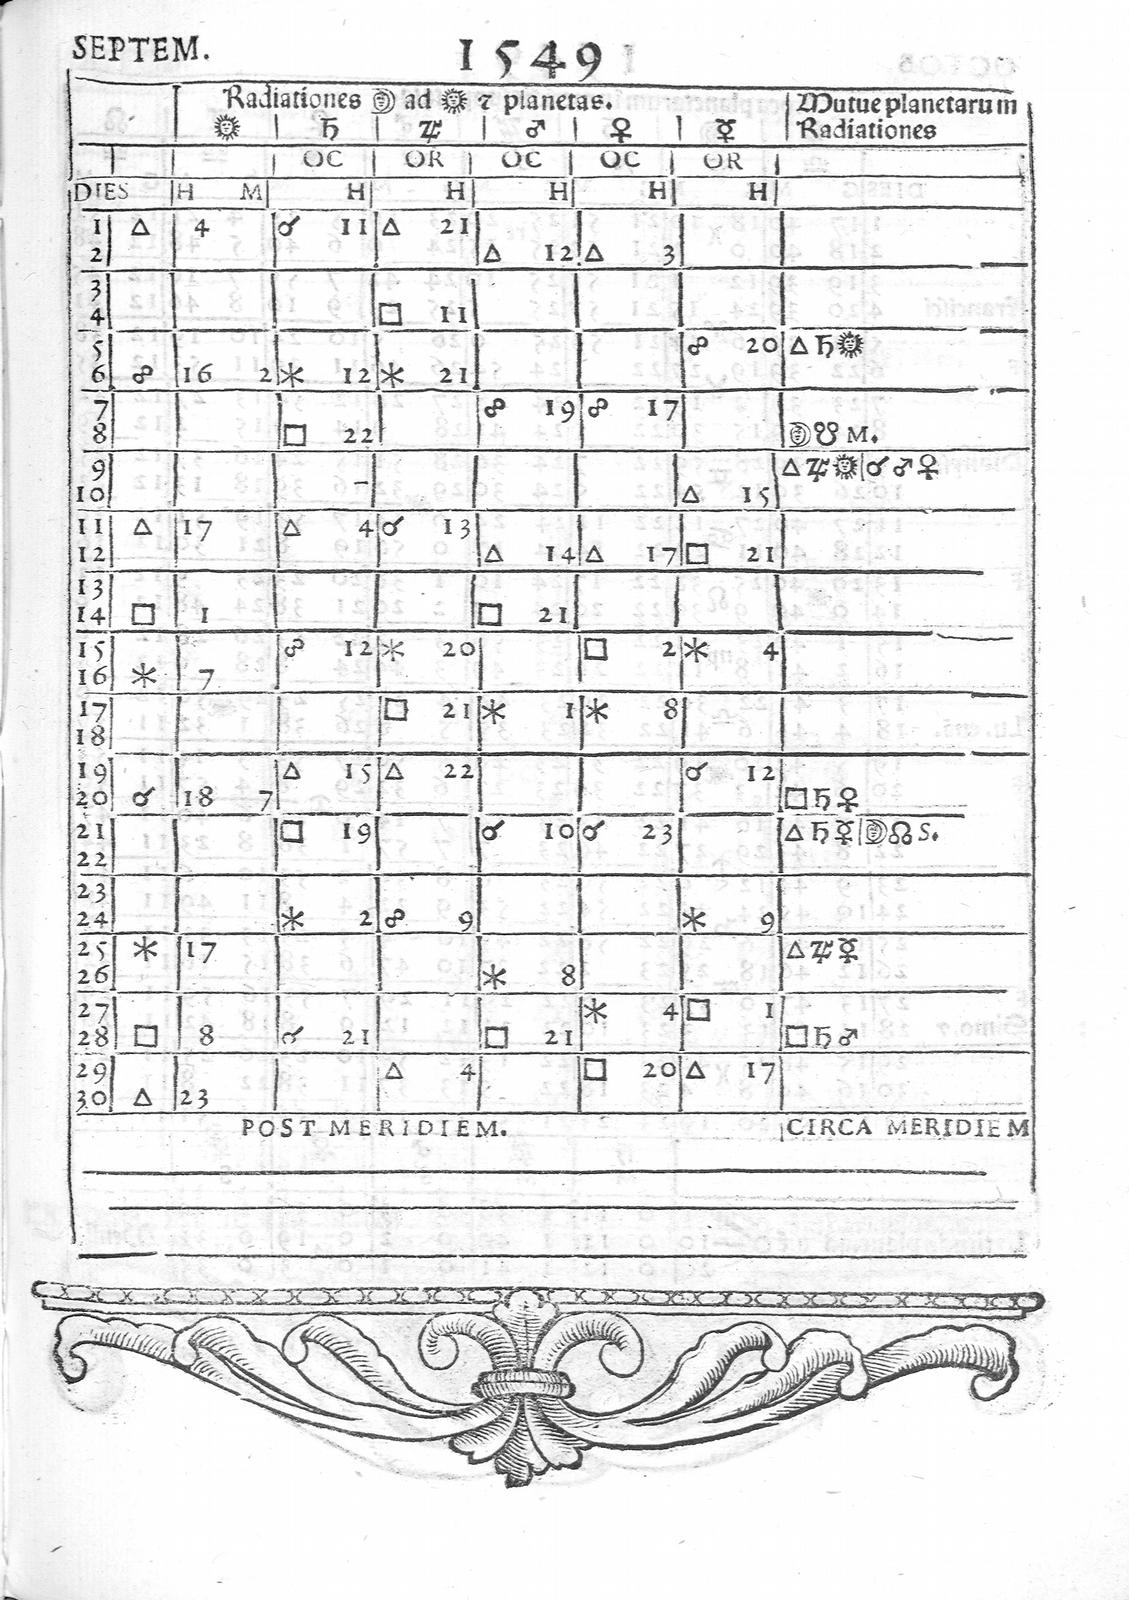 SEPTEM. 1549
Radiationes ☽ ad ☉ ⁊ planetas. Mutue planetarum
☉ ♄ ♃ ♂ ♀ ☿ Radiationes
OC OR OC OC OR
DIES H M H H H H H
1 △ 4 ☌ 11 △ 21
2 △ 12 △ 3
3
4 □ 11
5 ☍ 20 △ ♄ ☉
6 ☍ 16 2 ⚹ 12 ⚹ 21
7 ☍ 19 ☍ 17
8 □ 22 ☽ ☋ M.
9 △ ♃ ☉ | ☌ ♂ ♀
10 △ 15
11 △ 17 △ 4 ☌ 13
12 △ 14 △ 17 □ 21
13
14 □ 1 □ 21
15 ☍ 12 ⚹ 20 □ 2 ⚹ 4
16 ⚹ 7
17 □ 21 ⚹ 1 ⚹ 8
18
19 △ 15 △ 22 ☌ 12
20 ☌ 18 7 □ ♄ ♀
21 □ 19 ☌ 10 ☌ 23 △ ♄ ☿ | ☽ ☊ S.
22
23
24 ⚹ 2 ☍ 9 ⚹ 9
25 ⚹ 17 △ ♃ ☿
26 ⚹ 8
27 ⚹ 4 □ 1
28 □ 8 ☌ 21 □ 21 □ ♄ ♂
29 △ 4 □ 20 △ 17
30 △ 23
POST MERIDIEM. CIRCA MERIDIEM